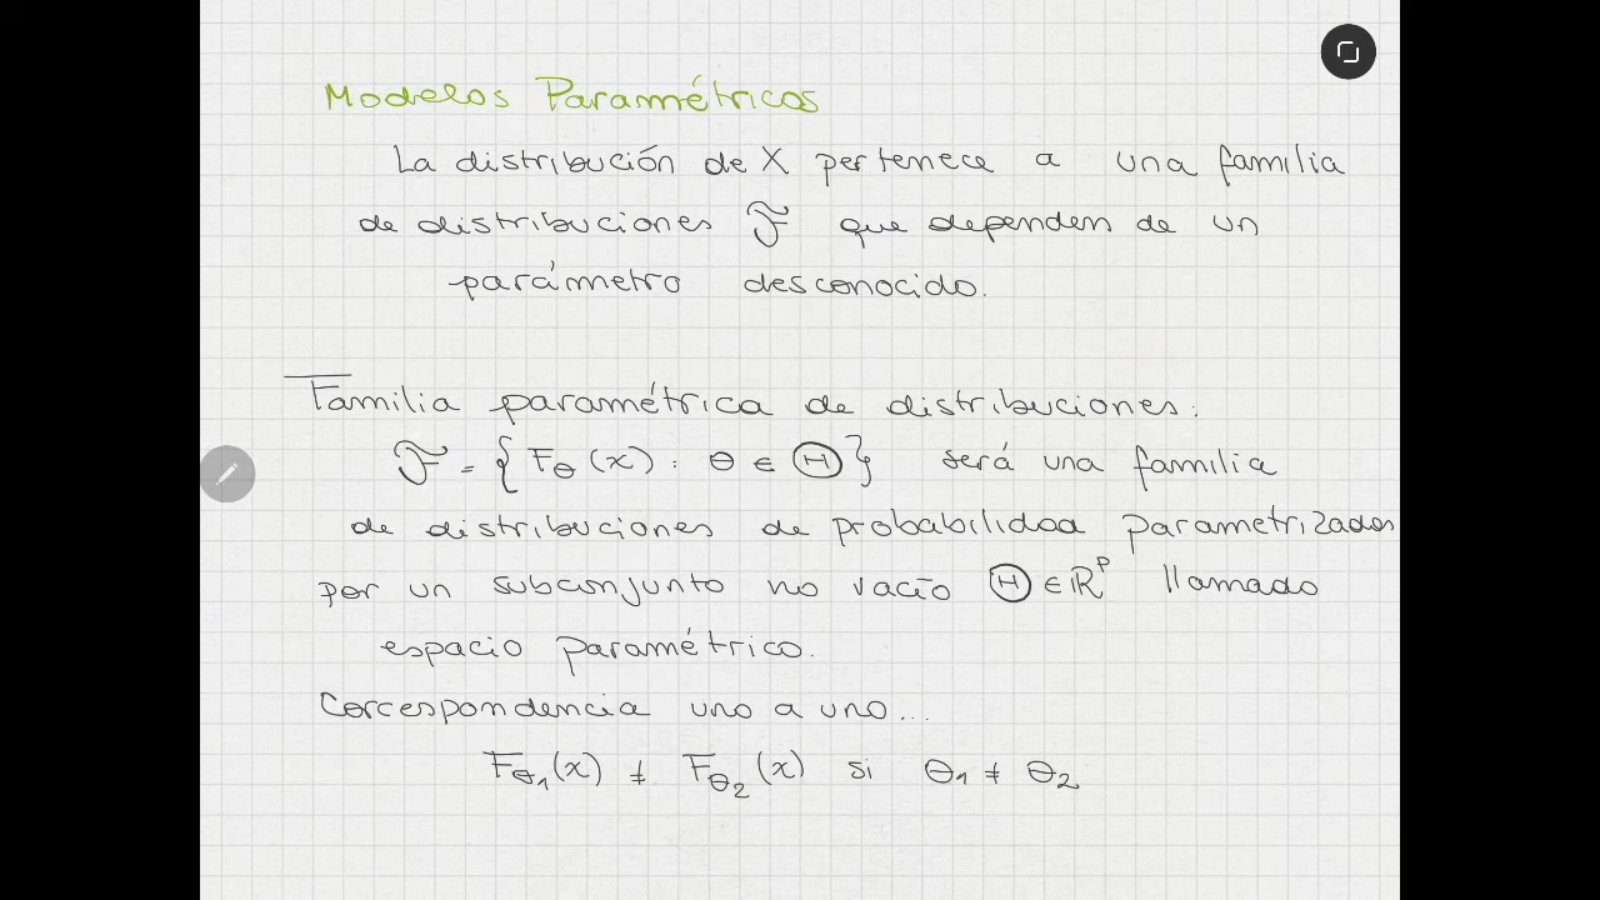 Modelos Paramétricos
La distribución de X pertenece a una familia
de distribuciones ℱ que dependen de un
parámetro desconocido.
Familia paramétrica de distribuciones:
ℱ = { F_θ (x) : θ ∈ Θ } será una familia
de distribuciones de probabilidaa parametrizados
por un subconjunto no vacío Θ ∈ ℝ^p llamado
espacio paramétrico.
Correspondencia uno a uno...
F_θ₁(x) ≠ F_θ₂(x) si θ₁ ≠ θ₂